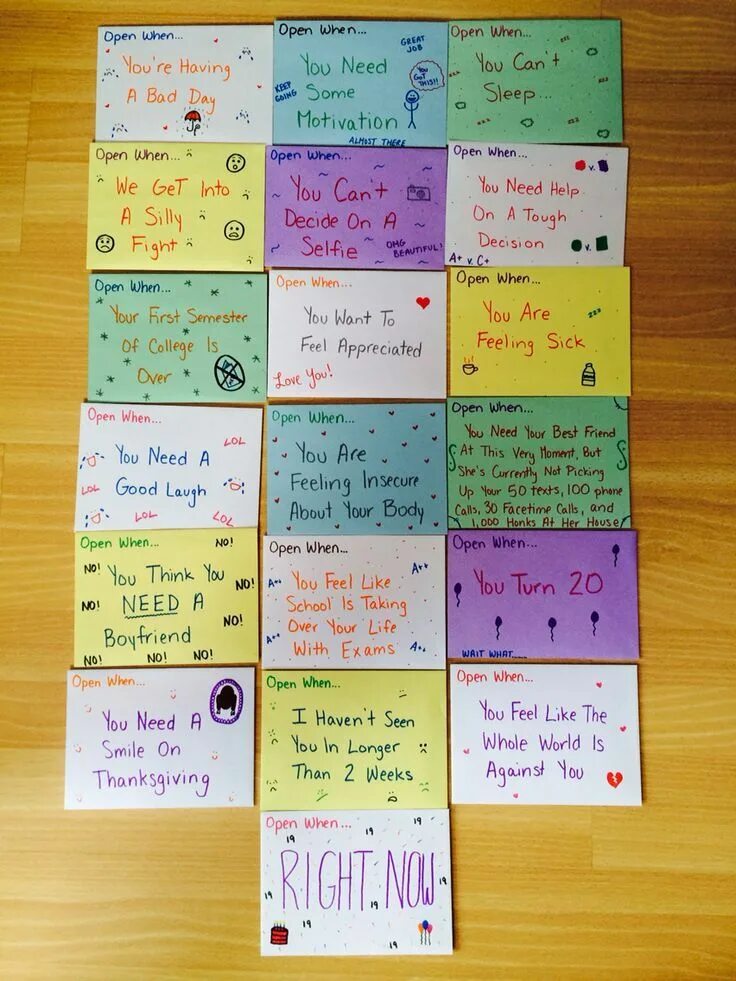 Open When...
You're Having
A Bad Day
Open When...
GREAT
JOB
You Need
YOU
GOT
THIS!!
KEEP
GOING
Some
Motivation
ALMOST THERE
Open When...
zzz
You Can't
Sleep...
zzz
zzz
Open When...
We Get Into
A Silly
Fight
Open When...
You Can't
Decide On A
Selfie
OMG
BEAUTIFUL!
Open When...
v.
You Need Help
On A Tough
Decision
v.
A+ v. C+
Open When...
Your First Semester
of College Is
Over
Open When...
You Want To
Feel Appreciated
Love You!
Open When...
You Are
zzz
Feeling Sick
Open When...
LOL
You Need A
Good Laugh
LOL
LOL
LOL
Open When...
You Are
Feeling Insecure
About Your Body
Open When...
You Need Your Best Friend
At This Very Moment, But
She's Currently Not Picking
Up Your 50 texts, 100 phone
Calls, 30 Facetime Calls, and
1,000 Honks At Her House
Open When...
NO!
NO!
NO!
You Think You
NO!
NO!
NEED A
NO!
Boyfriend
NO!
NO!
NO!
Open When...
A++
A++
You Feel Like
School Is Taking
Over Your Life
With Exams
A++
A++
Open When...
You Turn 20
WAIT WHAT......
Open When...
You Need A
Smile On
Thanksgiving
Open When...
I Haven't Seen
You In Longer
Than 2 Weeks
Open When...
You Feel Like The
Whole World Is
Against You
Open When...
19
19
19
RIGHT NOW
19
19
19
19
19